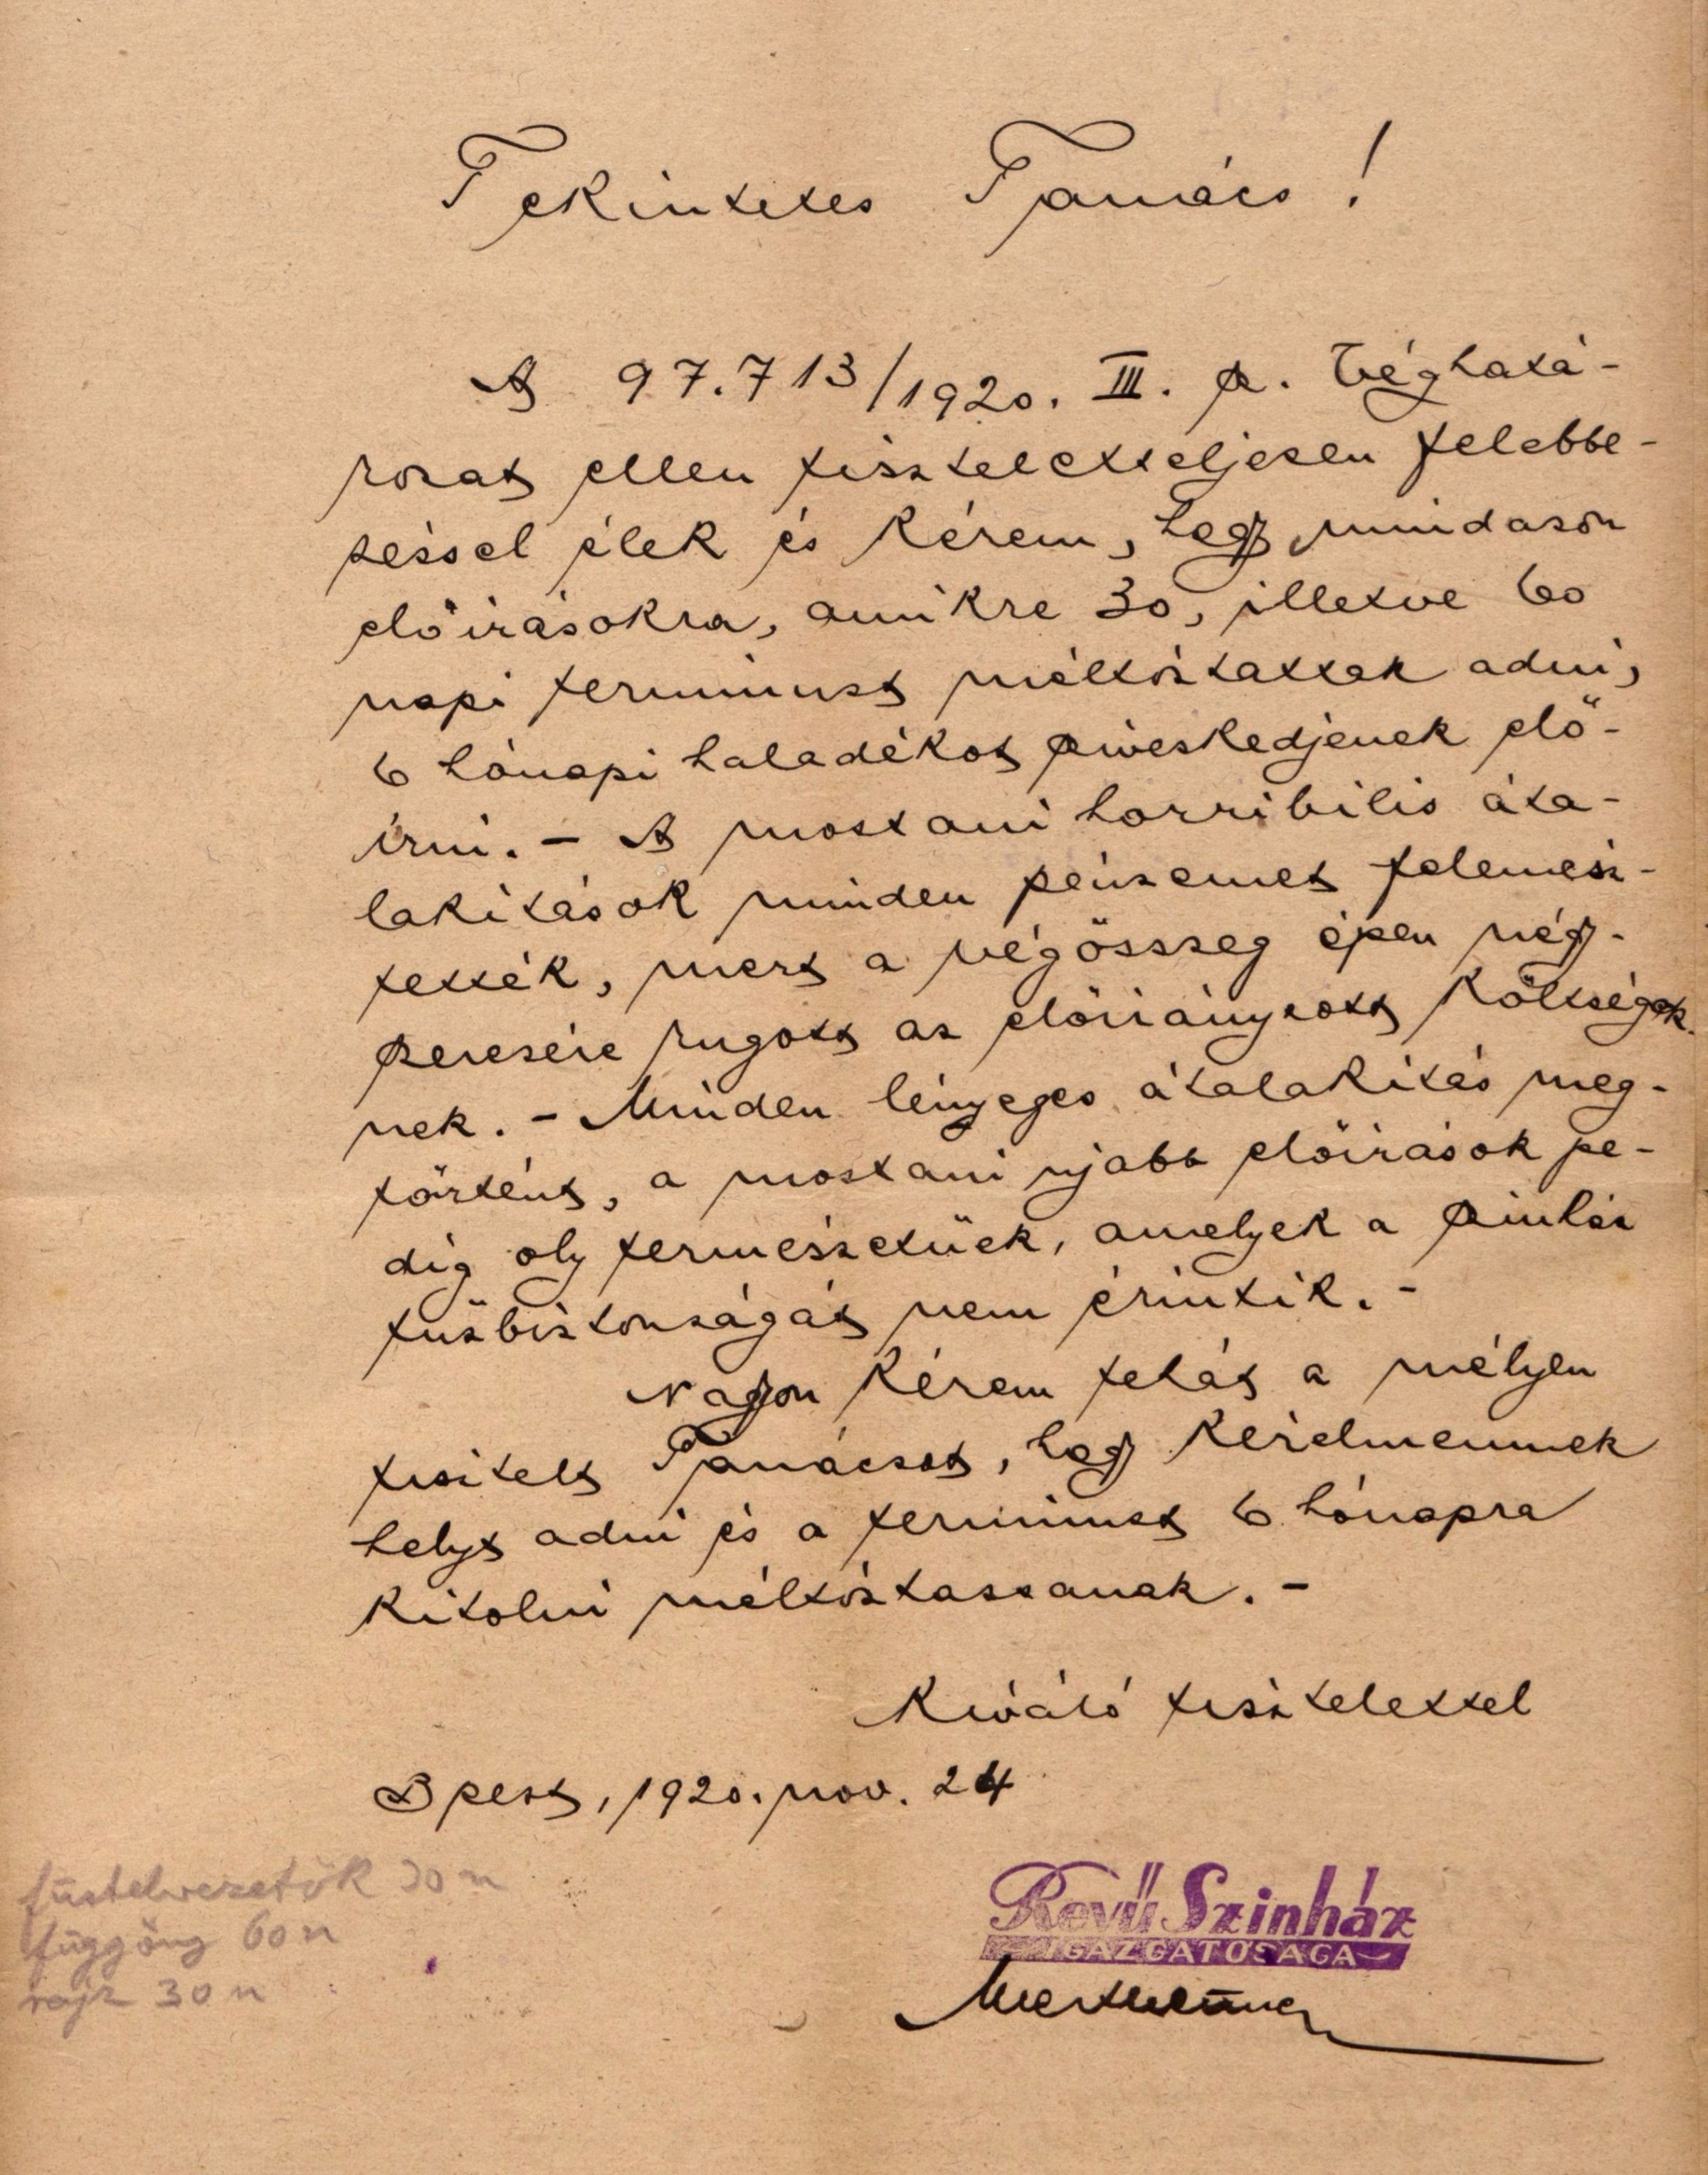 Tekintetes Tanács!
A 97.713/1920. III. sz. Véghatá-
rozat ellen tiszteletteljesen felebbe-
zéssel élek és kérem, hogy mindazon
előirásokra, amikre 30, illetve 60
napi terminust méltóztattak adni,
6 hónapi haladékot sziveskedjenek elő-
írni. - A mostani horribilis áta-
lakitások minden pénzemet felemész-
tették, mert a végösszeg épen négy-
szeresére rugott az előirányzott költségek-
nek. - Minden lényeges átalakitás meg-
történt, a mostani ujabb előirások pe-
dig oly természetüek, amelyek a szinház
tűzbiztonságát nem érintik. -
Nagyon kérem tehát a mélyen
tisztelt Tanácsot, hogy kérelmemnek
helyt adni és a terminust 6 hónapra
kitolni méltóztassanak. -
Kiváló tisztelettel
Bpest, 1920. nov. 24
füstelvezetők 30 n
függöny 60 n
rajz 30 n
Revű Szinház
IGAZGATÓSÁGA